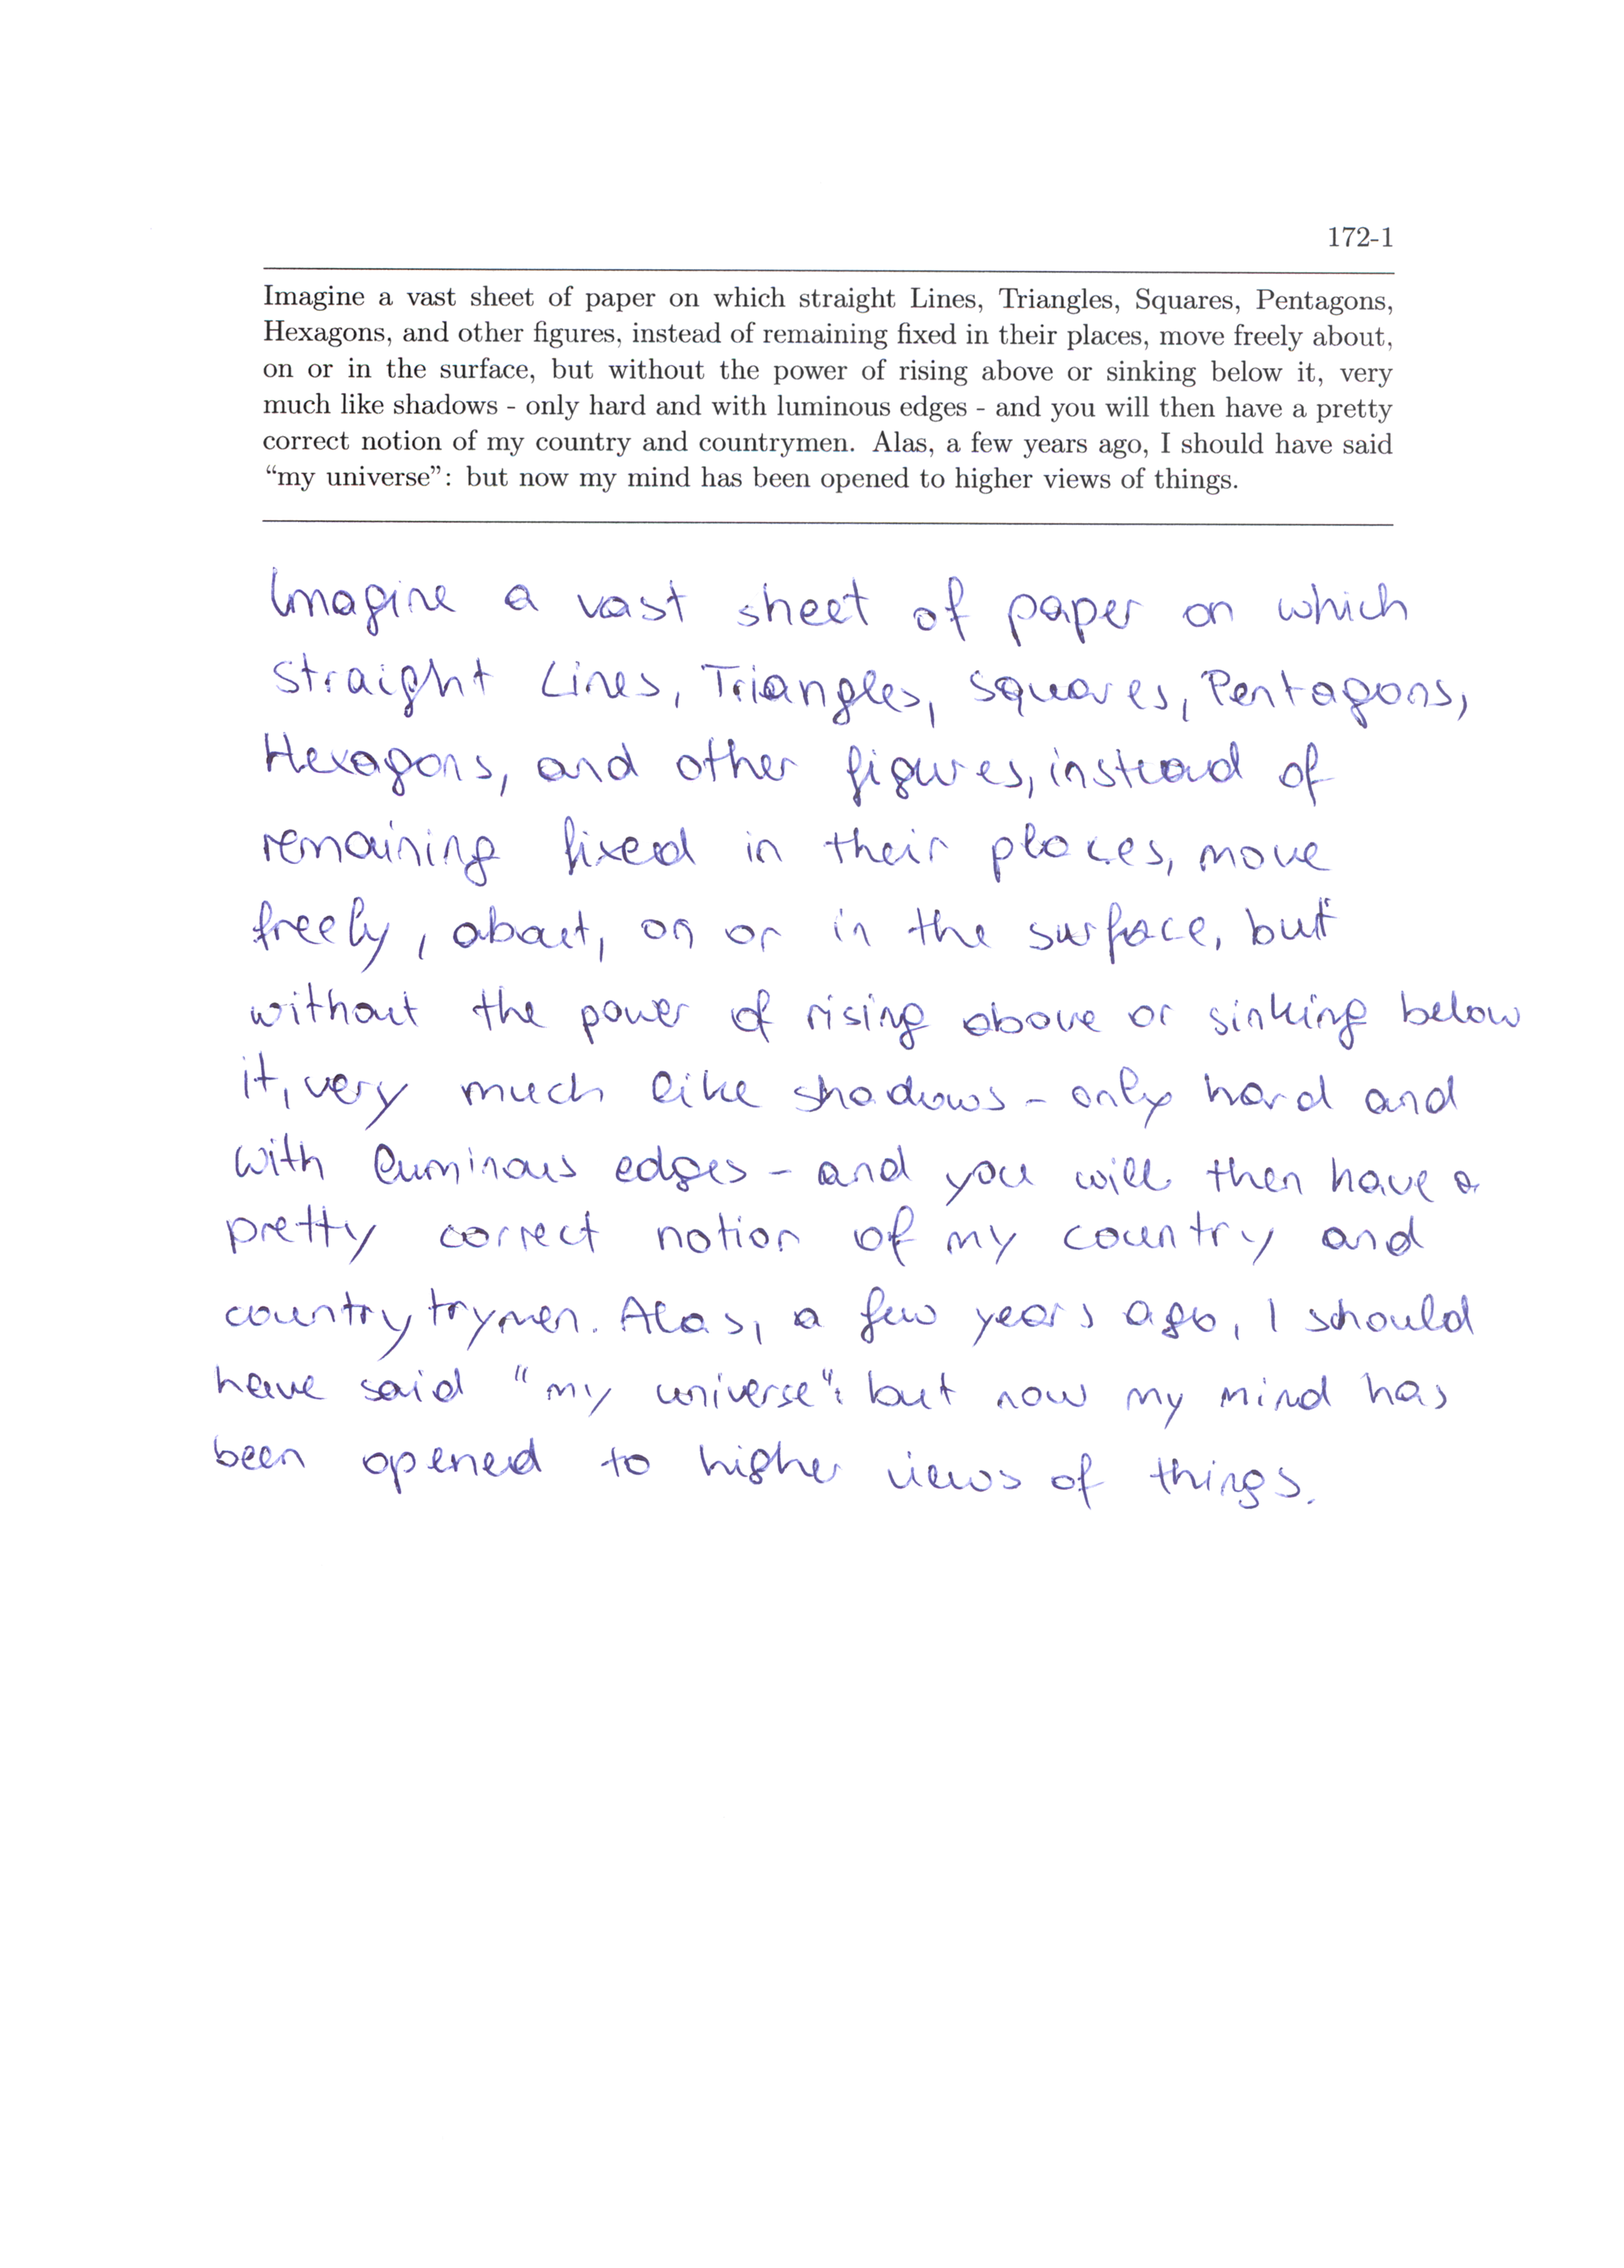 172-1
Imagine a vast sheet of paper on which straight Lines, Triangles, Squares, Pentagons,
Hexagons, and other figures, instead of remaining fixed in their places, move freely about,
on or in the surface, but without the power of rising above or sinking below it, very
much like shadows - only hard and with luminous edges - and you will then have a pretty
correct notion of my country and countrymen. Alas, a few years ago, I should have said
“my universe”: but now my mind has been opened to higher views of things.
Imagine a vast sheet of paper on which
straight Lines, Triangles, Squares, Pentagons,
Hexagons, and other figures, instead of
remaining fixed in their places, move
freely, about, on or in the surface, but
without the power of rising above or sinking below
it, very much like shadows - only hard and
with luminous edges - and you will then have a
pretty correct notion of my country and
countrytrymen. Alas, a few years ago, I should
have said "my universe": but now my mind has
been opened to higher views of things.